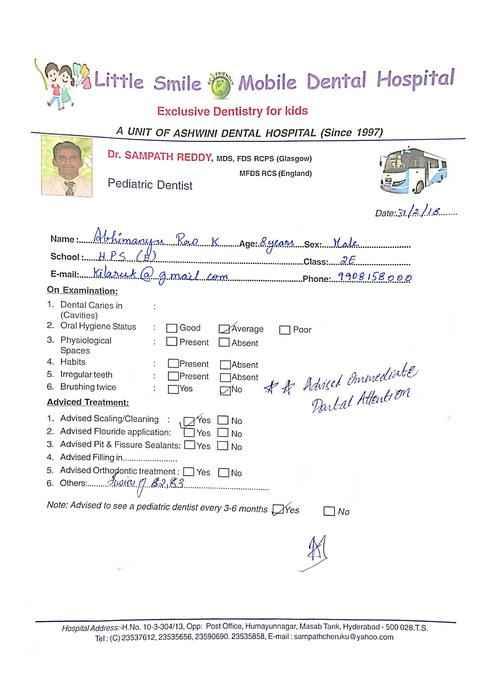 Little Smile Mobile Dental Hospital
Exclusive Dentistry for kids
A UNIT OF ASHWINI DENTAL HOSPITAL (Since 1997)
Dr. SAMPATH REDDY, MDS, FDS RCPS (Glasgow)
MFDS RCS (England)
Pediatric Dentist
Date: 31/2/18
Name: Abhimanyu Rao K Age: 8 years Sex: Male
School: H.P.S (B) Class: 2E
E-mail: @gmail.com Phone: 9908158000
On Examination:
1. Dental Caries in :
(Cavities)
2. Oral Hygiene Status : Good Average Poor
3. Physiological : Present Absent
Spaces
4. Habits : Present Absent
5. Irregular teeth : Present Absent
6. Brushing twice : Yes No
** Advised Immediate
Dental Attention
Adviced Treatment:
1. Advised Scaling/Cleaning : Yes No
2. Advised Flouride application: Yes No
3. Advised Pit & Fissure Sealants: Yes No
4. Advised Filling in
5. Advised Orthodontic treatment: Yes No
6. Others: of 82,83
Note: Advised to see a pediatric dentist every 3-6 months Yes No
Hospital Address:-H.No. 10-3-304/13, Opp: Post Office, Humayunnagar, Masab Tank, Hyderabad - 500 028.T.S.
Tel: (C) 23537612, 23535656, 23590690. 23535858, E-mail: sampathcheruku@yahoo.com